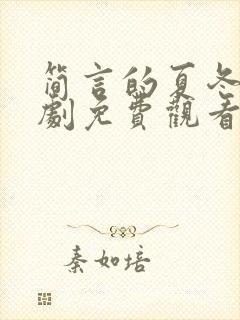 简言的夏冬
劇免費觀看
秦如培